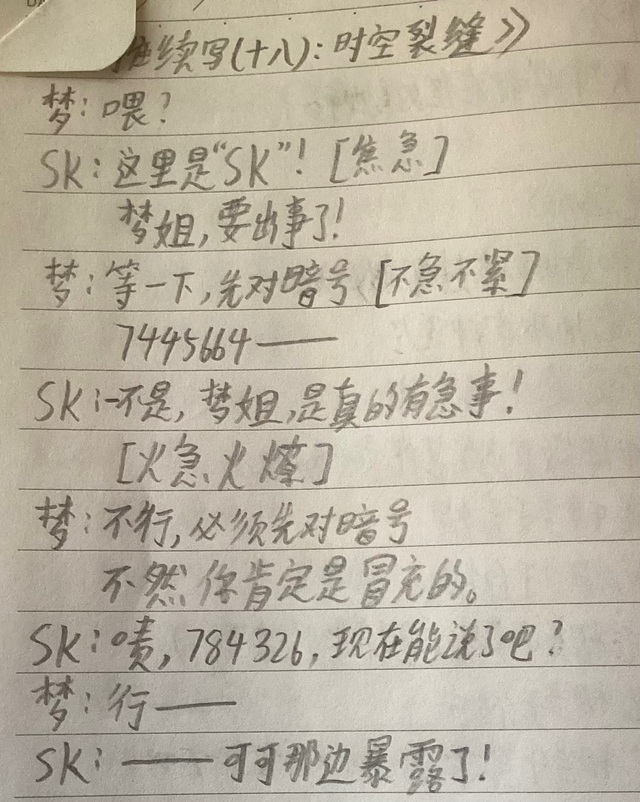 续写(十八):时空裂缝》
梦:喂?
SK:这里是“SK”![焦急]
梦姐,要出事了!
梦:等一下,先对暗号[不急不紧]
7445664——
SK:不是,梦姐,是真的有急事!
[火急火燎]
梦:不行,必须先对暗号
不然你肯定是冒充的。
SK:啧,784326,现在能说了吧?
梦:行——
SK:——可可那边暴露了!